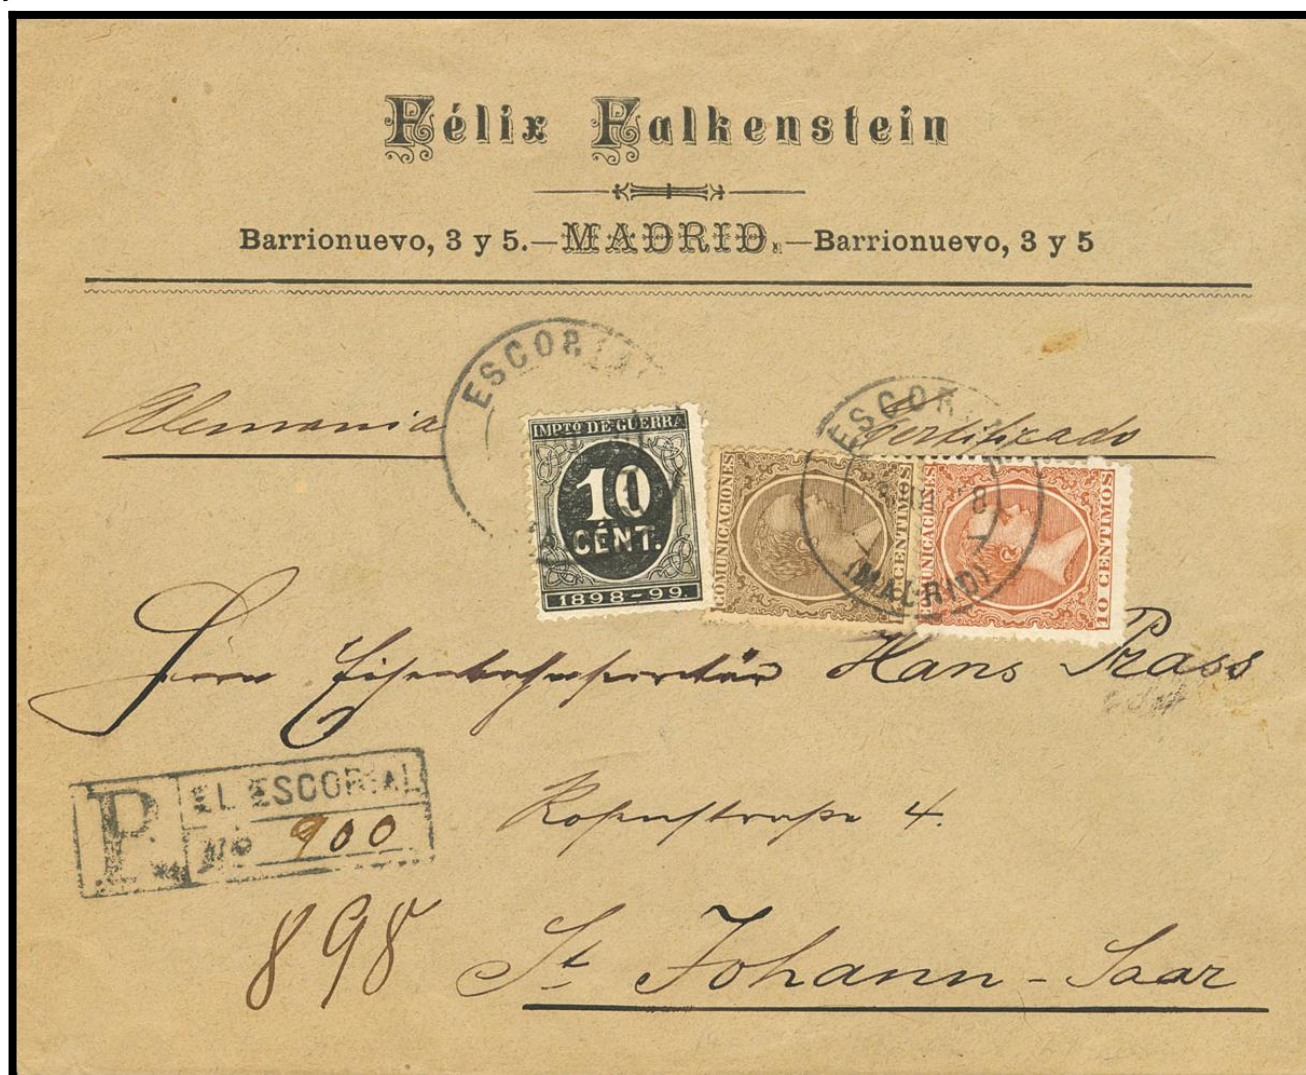 Félix Falkenstein
Barrionuevo, 3 y 5.—MADRID.—Barrionuevo, 3 y 5
ESCORIAL
Alemania
ESCORIAL
Certificado
IMPTO DE GUERRA
10
CÉNT.
1898-99.
COMUNICACIONES
CENTIMOS
(MADRID)
COMUNICACIONES
10 CENTIMOS
Herrn Eisenbahnsekretär Hans Prass
R
EL ESCORIAL
No 900
4.
898
St Johann - Saar